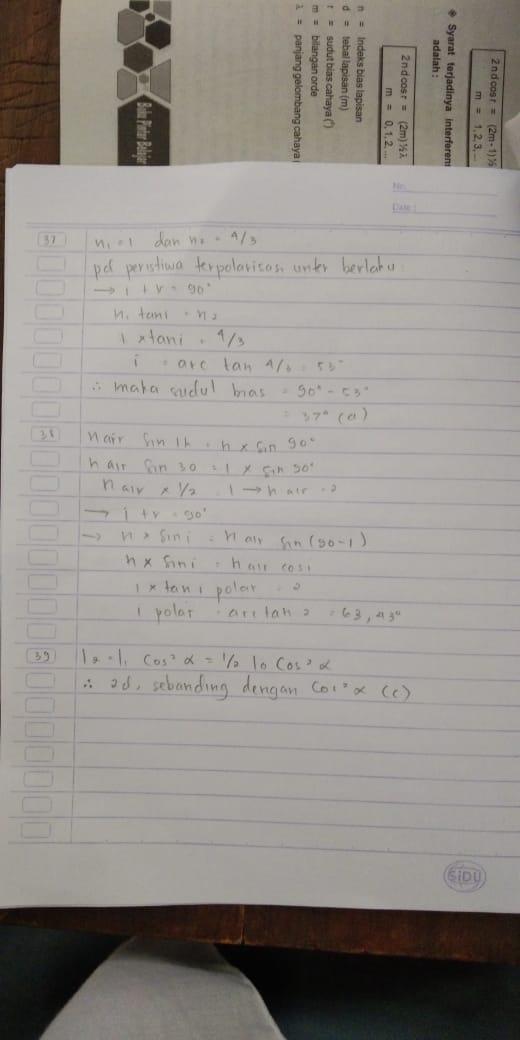 2 n d cos r = (2m - 1) ½
m = 1, 2, 3, ...
❖ Syarat terjadinya interferen
adalah :
2 n d cos r = (2m) ½ λ
m = 0, 1, 2, ...
n = Indeks bias lapisan
d = tebal lapisan (m)
r = sudut bias cahaya (°)
m = bilangan orde
λ = panjang gelombang cahaya
Buku Pintar Belajar
No.
Date :
37 n₁ = 1 dan n₂ = 4/3
pd peristiwa terpolarisasi berlaku
→ i + r = 90°
n₁ tan i = n₂
1 x tan i = 4/3
i = arc tan 4/3 = 53°
∴ maka sudut bias = 90° - 53°
= 37° (a)
38 n air sin ik = n x sin 90°
n air sin 30 = 1 x sin 90°
n air x 1/2 = 1 → n air = 2
→ i + r = 90°
→ n x sin i = n air sin (90 - i)
n x sin i = n air cos i
1 x tan i polar = 2
i polar = arc tan 2 = 63,43°
39 I₂ = I₁ cos² α = 1/2 I₀ cos² α
∴ sebanding dengan cos² α (c)
SIDU